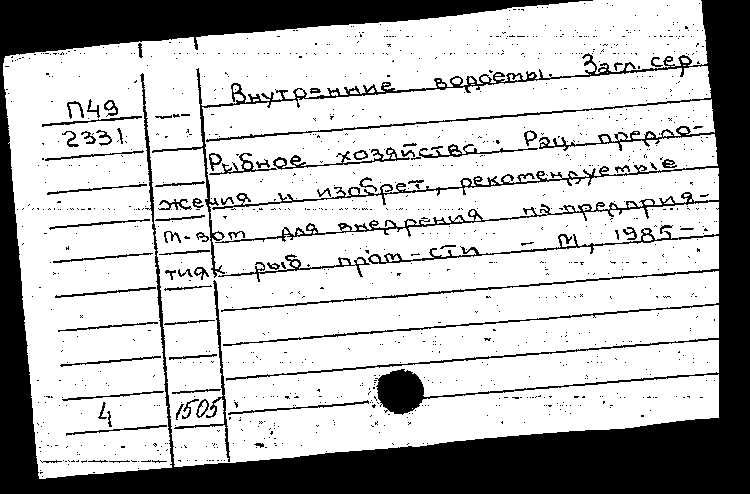 Внутренние водоемы. Загл. сер.
П49
2331
Рыбное хозяйство : Рац. предло-
жения и изобрет., рекомендуемые
м-вом для внедрения на предприя-
тиях рыб. пром-сти - М, 1985-.
4 1505